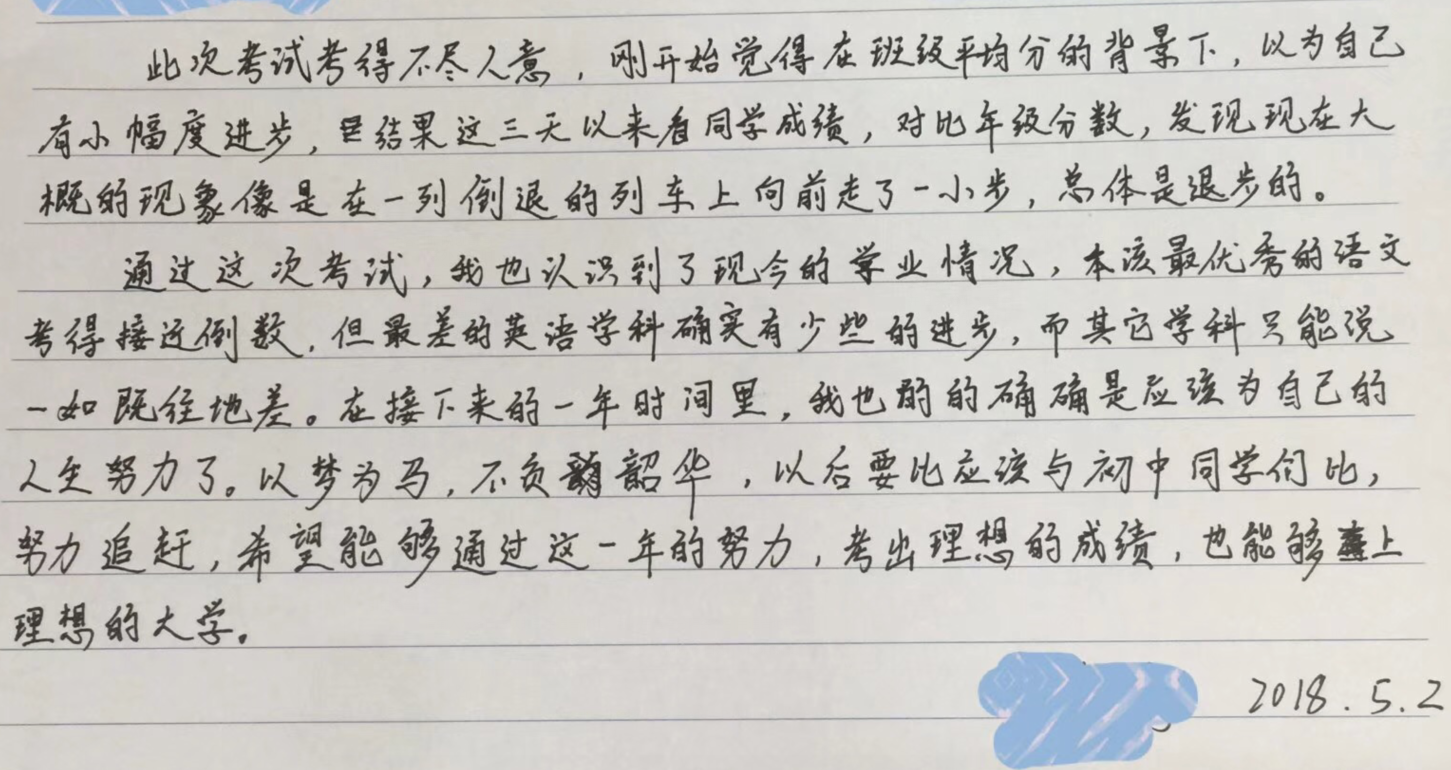 此次考试考得不尽人意，刚开始觉得在班级平均分的背景下，以为自己
有小幅度进步，结果这三天以来看同学成绩，对比年级分数，发现现在大
概的现象像是在一列倒退的列车上向前走了一小步，总体是退步的。
通过这次考试，我也认识到了现今的学业情况，本该最优秀的语文
考得接近倒数，但最差的英语学科确实有少些的进步，而其它学科只能说
一如既往地差。在接下来的一年时间里，我也的的确确是应该为自己的
人生努力了。以梦为马，不负韶华，以后要比应该与初中同学们比，
努力追赶，希望能够通过这一年的努力，考出理想的成绩，也能够上
理想的大学。
2018.5.2